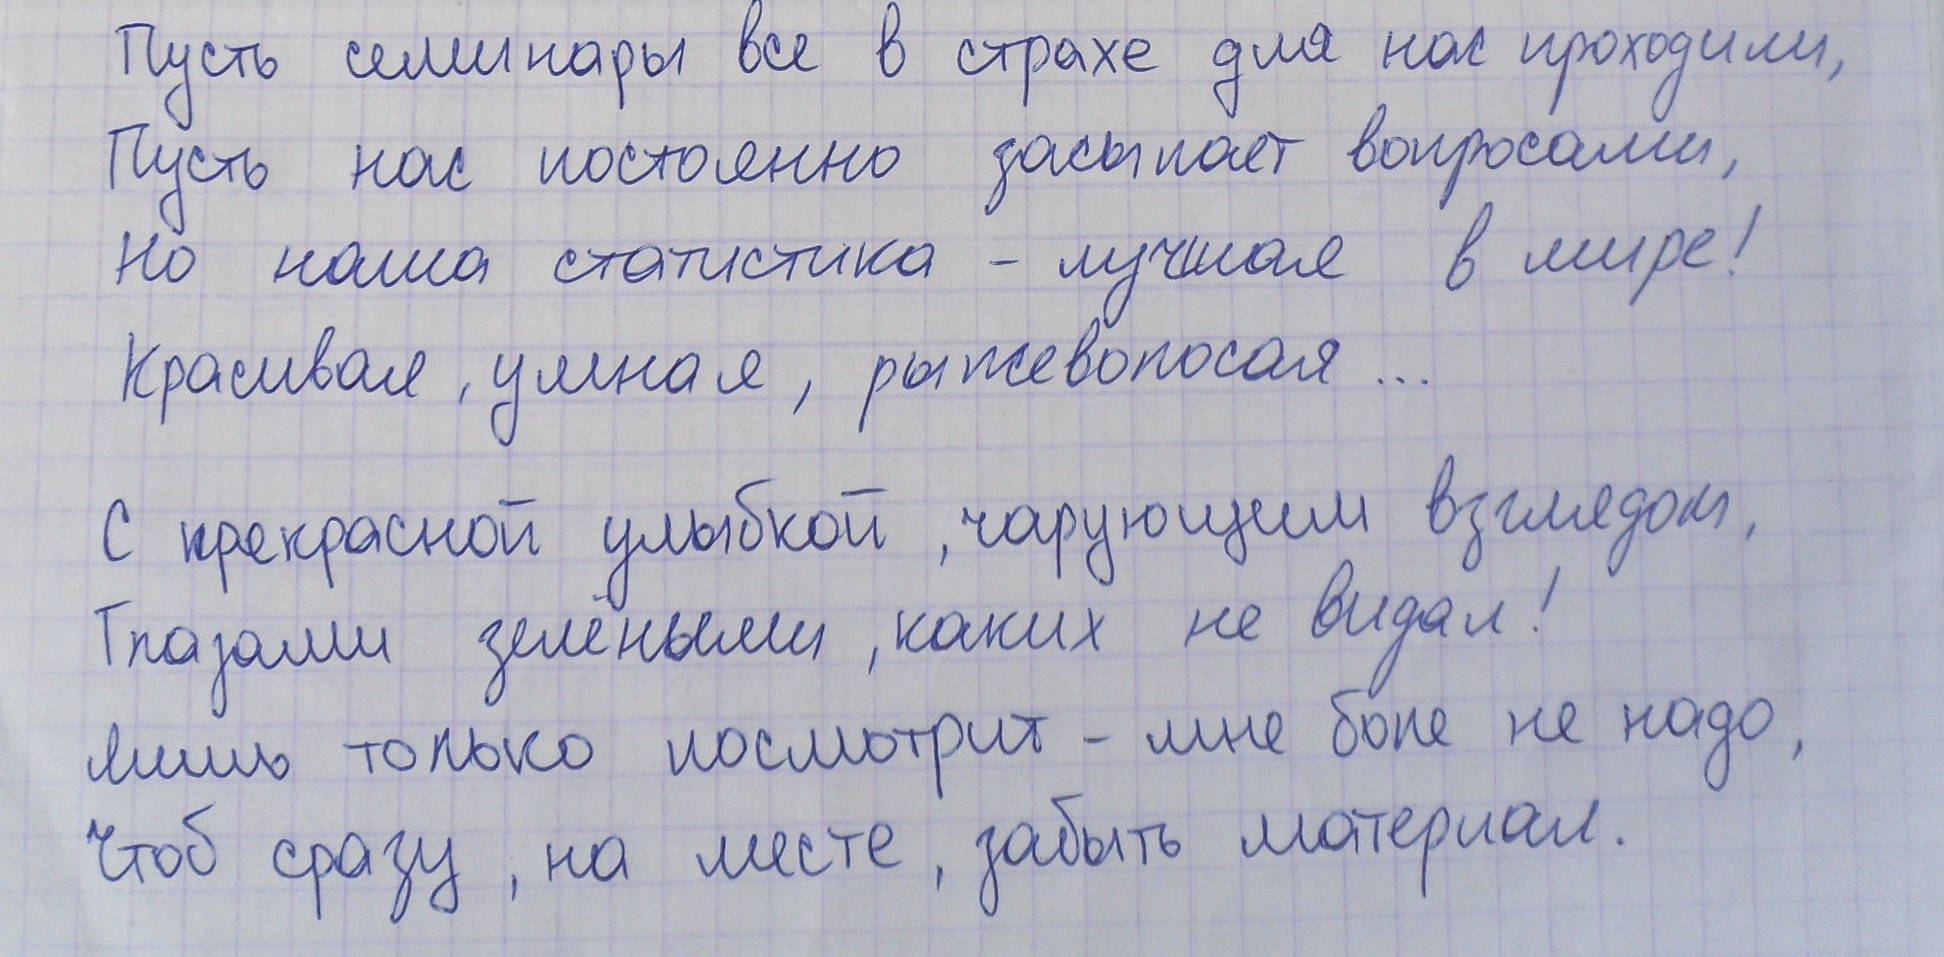 Пусть семинары все в страхе для нас проходили,
Пусть нас постоянно засыпает вопросами,
Но наша статистика - лучшая в мире!
Красивая, умная, рыжеволосая...
С прекрасной улыбкой, чарующим взглядом,
Глазами зелёными, каких не видал!
Лишь только посмотрит - мне боле не надо,
Чтоб сразу, на месте, забыть материал.